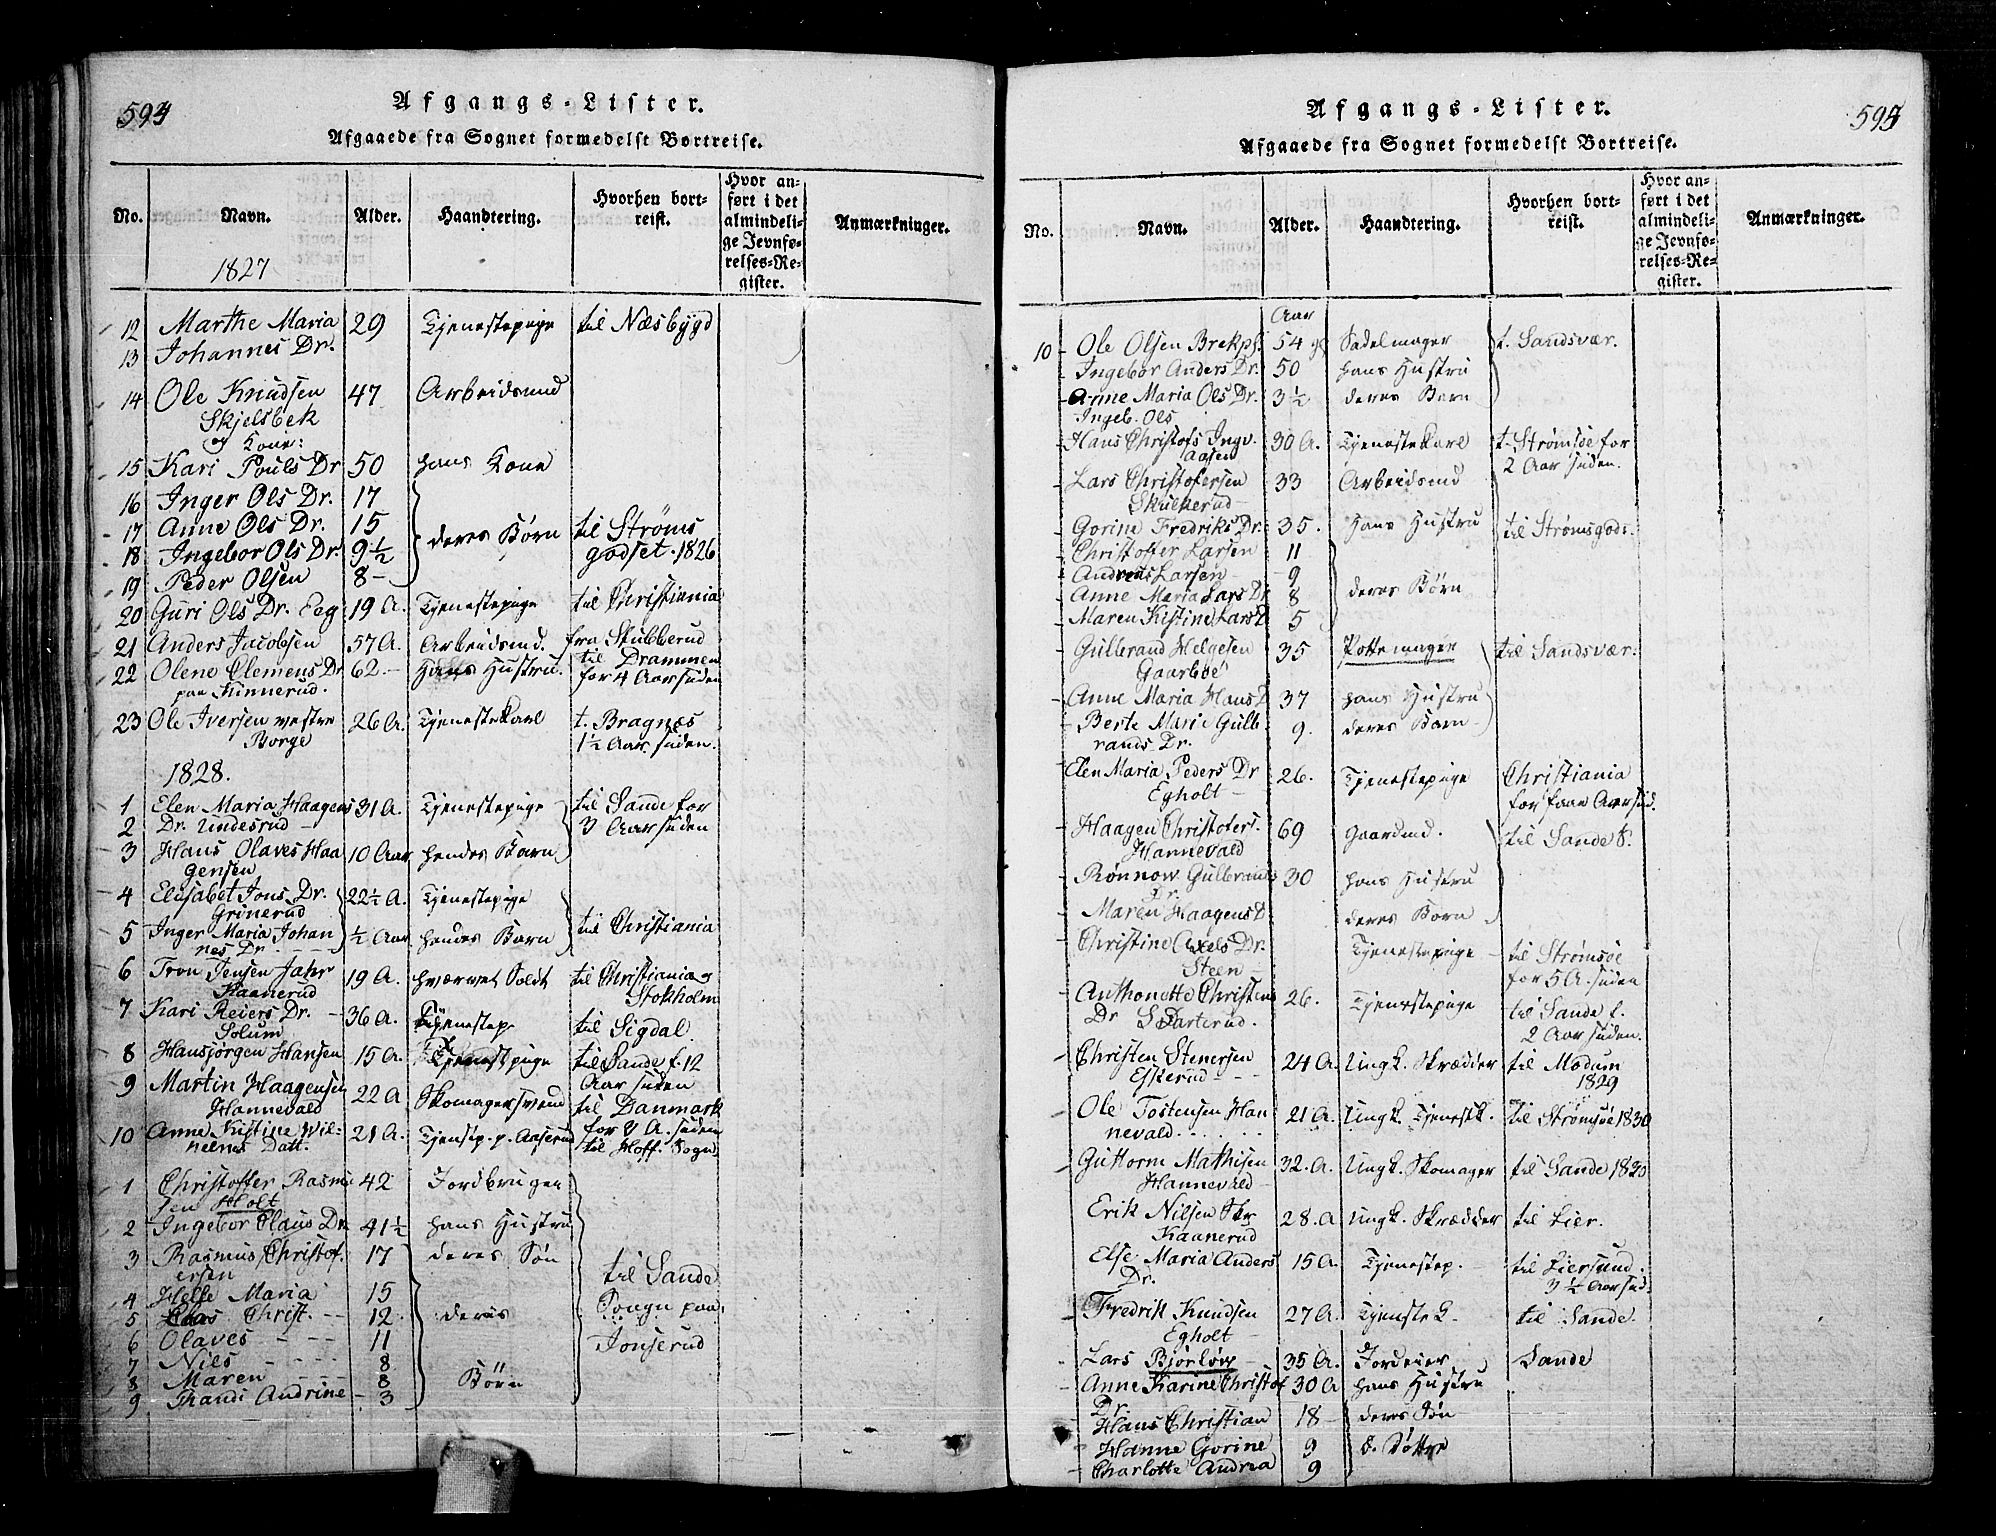 594
Afgangs-Lister.
Afgaaede fra Sognet formedelst Bortreise.
No. Navn. Alder. Haandtering. Hvorhen bortreist. Hvor anført i det almindelige Jevnførelses-Register. Anmærkninger.
1827
12 Marthe Maria 29 Tjenestepige til Næsbygd
13 Johannes Dr.
14 Ole Knudsen 47 Arbeidsmd
Skjelsbek
og Kone:
15 Kari Pouls Dr 50 hans Kone
16 Inger Ols Dr. 17
17 Anne Ols Dr. 15 deres Børn til Strøms
18 Ingebor Ols Dr. 9½ godset. 1826
19 Peder Olsen 8 -
20 Guri Ols Dr. Eeg 19 A. Tjenestepige til Christiania
21 Anders Jacobsen 57 A. Arbeidsmd. fra Skubberud
til Drammen
22 Olene Clemens Dr 62. - Hans Hustru. for 4 Aar siden
paa Kinnerud.
23 Ole Iversen vestre 26 A. Tjenestekarl t. Bragnæs
Borge 1½ Aar siden.
1828.
1 Elen Maria Haagens 31 A. Tjenestepige til Sande for
2 Dr. Undesrud - 3 Aar siden
3 Hans Olaves Haa 10 Aar hendes Barn
gensen
4 Elisabet Jons Dr. 22½ A. Tjenestepige
Grinerud
5 Inger Maria Johan ½ Aar hendes Barn til Christiania
nes Dr.
6 Tron Jensen Jahr 19 A. hværvet Soldt til Christiania
Haanerud Stokholm
7 Kari Reiers Dr. - 36 A. Tjenestep. til Sigdal.
Solum
8 Hansjørgen Hansen 15 A. Tjenestpige til Sande f. 12
Aar siden
9 Martin Haagensen 22 A Skomagersvend til Danmark
Hannevald for A. siden
10 Anne Kistine Wil- 21 A. Tjenstp. p. Aaserud til Hoff. Sogn
helms Datt.
1 Christoffer Rasmu 42 Jordbruger
sen Holt
2 Ingebor Claus Dr. 41½ hans Hustru
3 Rasmus Christof. 17 deres Søn
ersen til Sande
4 Helle Maria 15
5 Claas Christ. -- 12. deres Sogn paa
6 Olaves - - - 11 Jonserud
7 Niels - - - - 8
8 Maren - - - - 8 Børn
9 Randi Andrine - 3
595
Afgangs-Lister.
Afgaaede fra Sognet formedelst Bortreise.
No. Navn. Alder. Haandtering. Hvorhen bortreist. Hvor anført i det almindelige Jevnførelses-Register. Anmærkninger.
Aar
10 Ole Olsen Brekpl. 54 Sadelmager t. Sandsvær.
Ingebor Anders Dr. 50 hans Hustru
Anne Maria Ols Dr. 3½ deres Barn
Ingeb. Ols
Hans Christofs Ingv. 30 A. Tjenestekarl t. Strømsøe for
Aasen 2 Aar siden.
Lars Christofersen 33 Arbeidsmd
Skulkerud -
Gorine Fredriks Dr. 35. Hans Hustru til Strømsgods.
Christoffer Larsen 11
Andreas Larsen - 9
Anne Maria Lars Dr 8 deres Børn
Maren Kistine Lars D 5
Gulbrand Helgesen 35 Pottemager til Sandsvær.
Gaarboe
Anne Maria Hans D 37 hans Hustru
Berte Marie Gulb 9. deres Barn -
rands Dr.
Elen Maria Peders Dr 26. Tjenestepige Christiania
Egholt - for faae Aar sid.
Haagen Christofers. 69 Gaardmd. til Sande S.
Hannevald
Rønnow Gulbrands 30 hans Hustru
Dr.
Maren Haagens D deres Born
Christine Axels Dr. Tjenestepige - til Strømsøe
Steen - for 5 A. siden
Anthonette Christens 26. Tjenestepige til Sande f.
Dr Sparterud. 2 Aar siden.
Christen Stenersen 24 A. Ungk. Skrædder til Modum
Eskerud - - - 1829
Ole Tostensen Han 21 A. Ungk. Tjenestk. til Strømsøe 1830
nevald. . . . .
Guttorm Mathisen 32. A. Ungk. Skomager til Sande 1830
Hannevald -
Erik Nilsen Skr 28. A Ungk. Skrædder til Lier.
Kaanerud
Else Maria Anders 15 A. Tjenestep. - til Liersund.
Dr. 3½ Aar sid.
Fredrik Knudsen 27 A. Tjenste K. - til Sande.
Egholt -
Lars Bjørløw 35 A. Jordeier Sande
Anne Karine Christof 30 A hans Hustru
Dr.
Hans Christian 18 - deres Søn
Hanne Gorine 9 d. Døttre
Charlotte Andrea 9